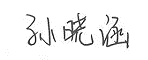 孙晓涵